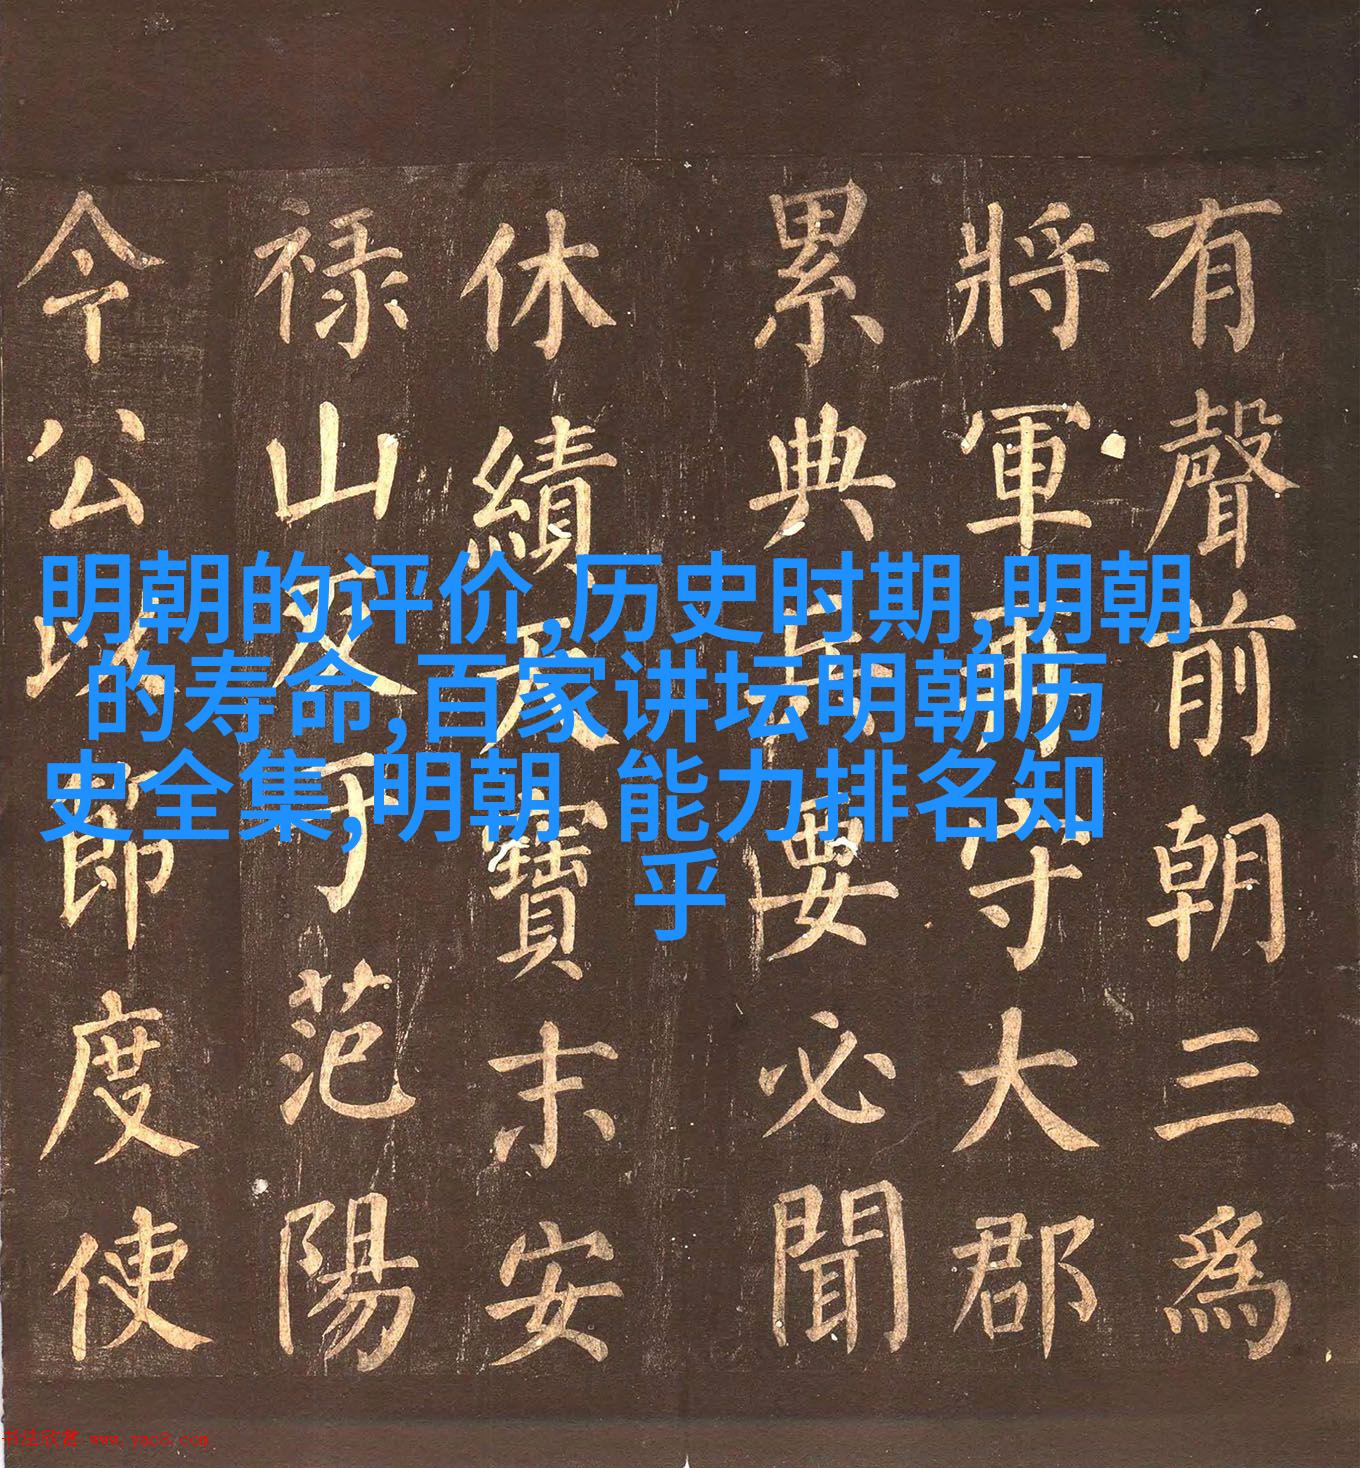 明朝的评价,历史时期,明朝
的寿命,百家讲坛明朝历
史全集,明朝 能力排名知
乎
有聲前朝三爲
將軍再守大郡
累典兵要必聞
休績天寶末安
禄山反范陽
令公以節度使
书法欣赏 www.yac8.com